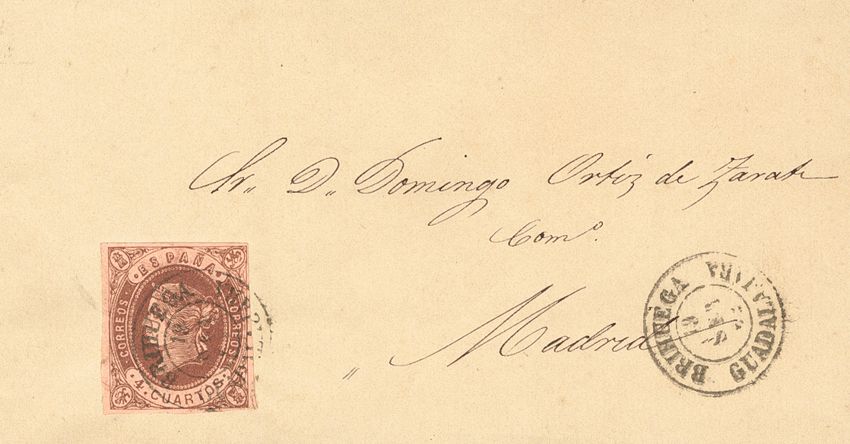 Sr. D. Domingo Ortiz de Zarate
Com.º
" Madrid
· ESPAÑA ·
CORREOS CORREOS
4 CUARTOS
BRIHUEGA
BRIHUEGA
GUADALAJARA